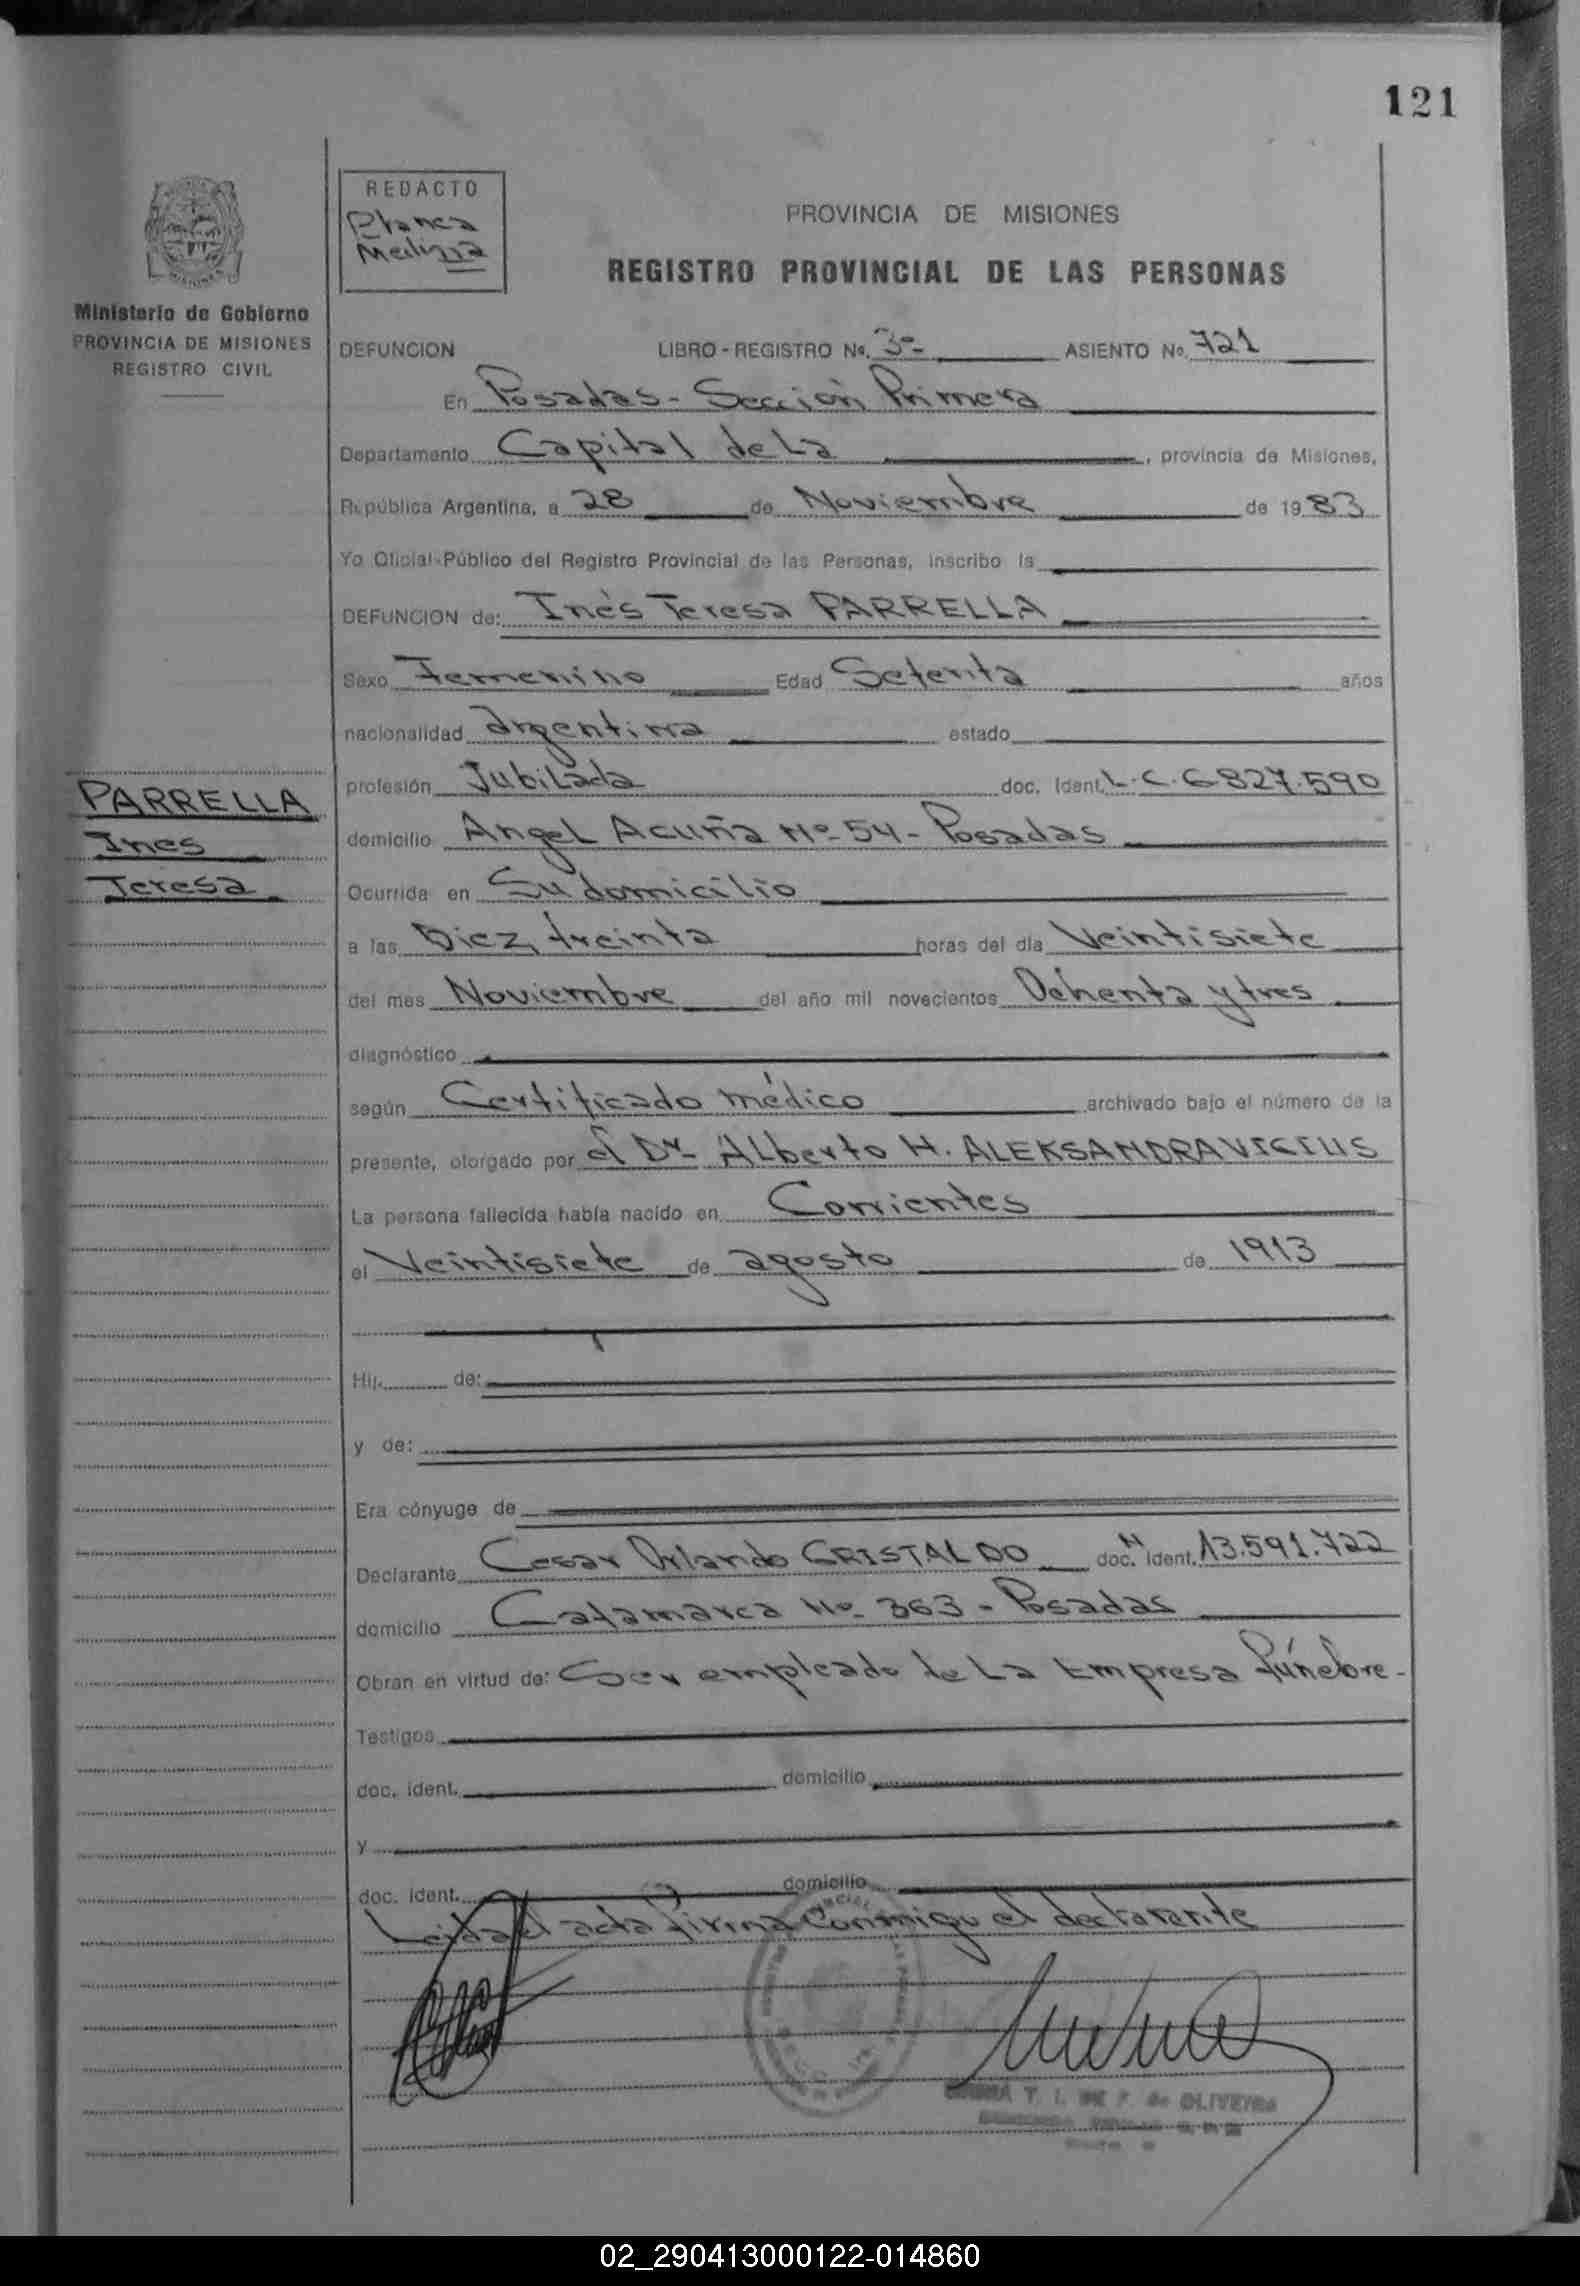 121
REDACTO
Blanca
Medina
PROVINCIA DE MISIONES
REGISTRO PROVINCIAL DE LAS PERSONAS
Ministerio de Gobierno
PROVINCIA DE MISIONES
REGISTRO CIVIL
DEFUNCION LIBRO - REGISTRO No. 3º ASIENTO No. 721
En Posadas - Sección Primera
Departamento Capital de La , provincia de Misiones,
República Argentina, a 28 de Noviembre de 1983
Yo Oficial Público del Registro Provincial de las Personas, inscribo la
DEFUNCION de: Inés Teresa PARRELLA
Sexo Femenino Edad Setenta años
nacionalidad argentina estado
profesión Jubilada doc. Ident. L.C. 6.827.590
PARRELLA
Ines
Teresa
domicilio Angel Acuña Nº 54 - Posadas
Ocurrida en Su domicilio
a las Diez, treinta horas del día Veintisiete
del mes Noviembre del año mil novecientos Ochenta y tres
diagnóstico
según Certificado médico archivado bajo el número de la
presente, otorgado por el Dr. Alberto H. ALEKSANDRAVICIUS
La persona fallecida había nacido en Corrientes
el Veintisiete de agosto de 1913
Hij. de:
y de:
Era cónyuge de
Declarante Cesar Orlando CRISTALDO doc. N Ident. 13.591.722
domicilio Catamarca Nº 363 - Posadas
Obran en virtud de: Ser empleado de La Empresa fúnebre -
Testigos
doc. ident. domicilio
y
doc. ident. domicilio
Leida el acta firma Conmigo el declarante
T. I. DE F. de OLIVEIRA
02_290413000122-014860